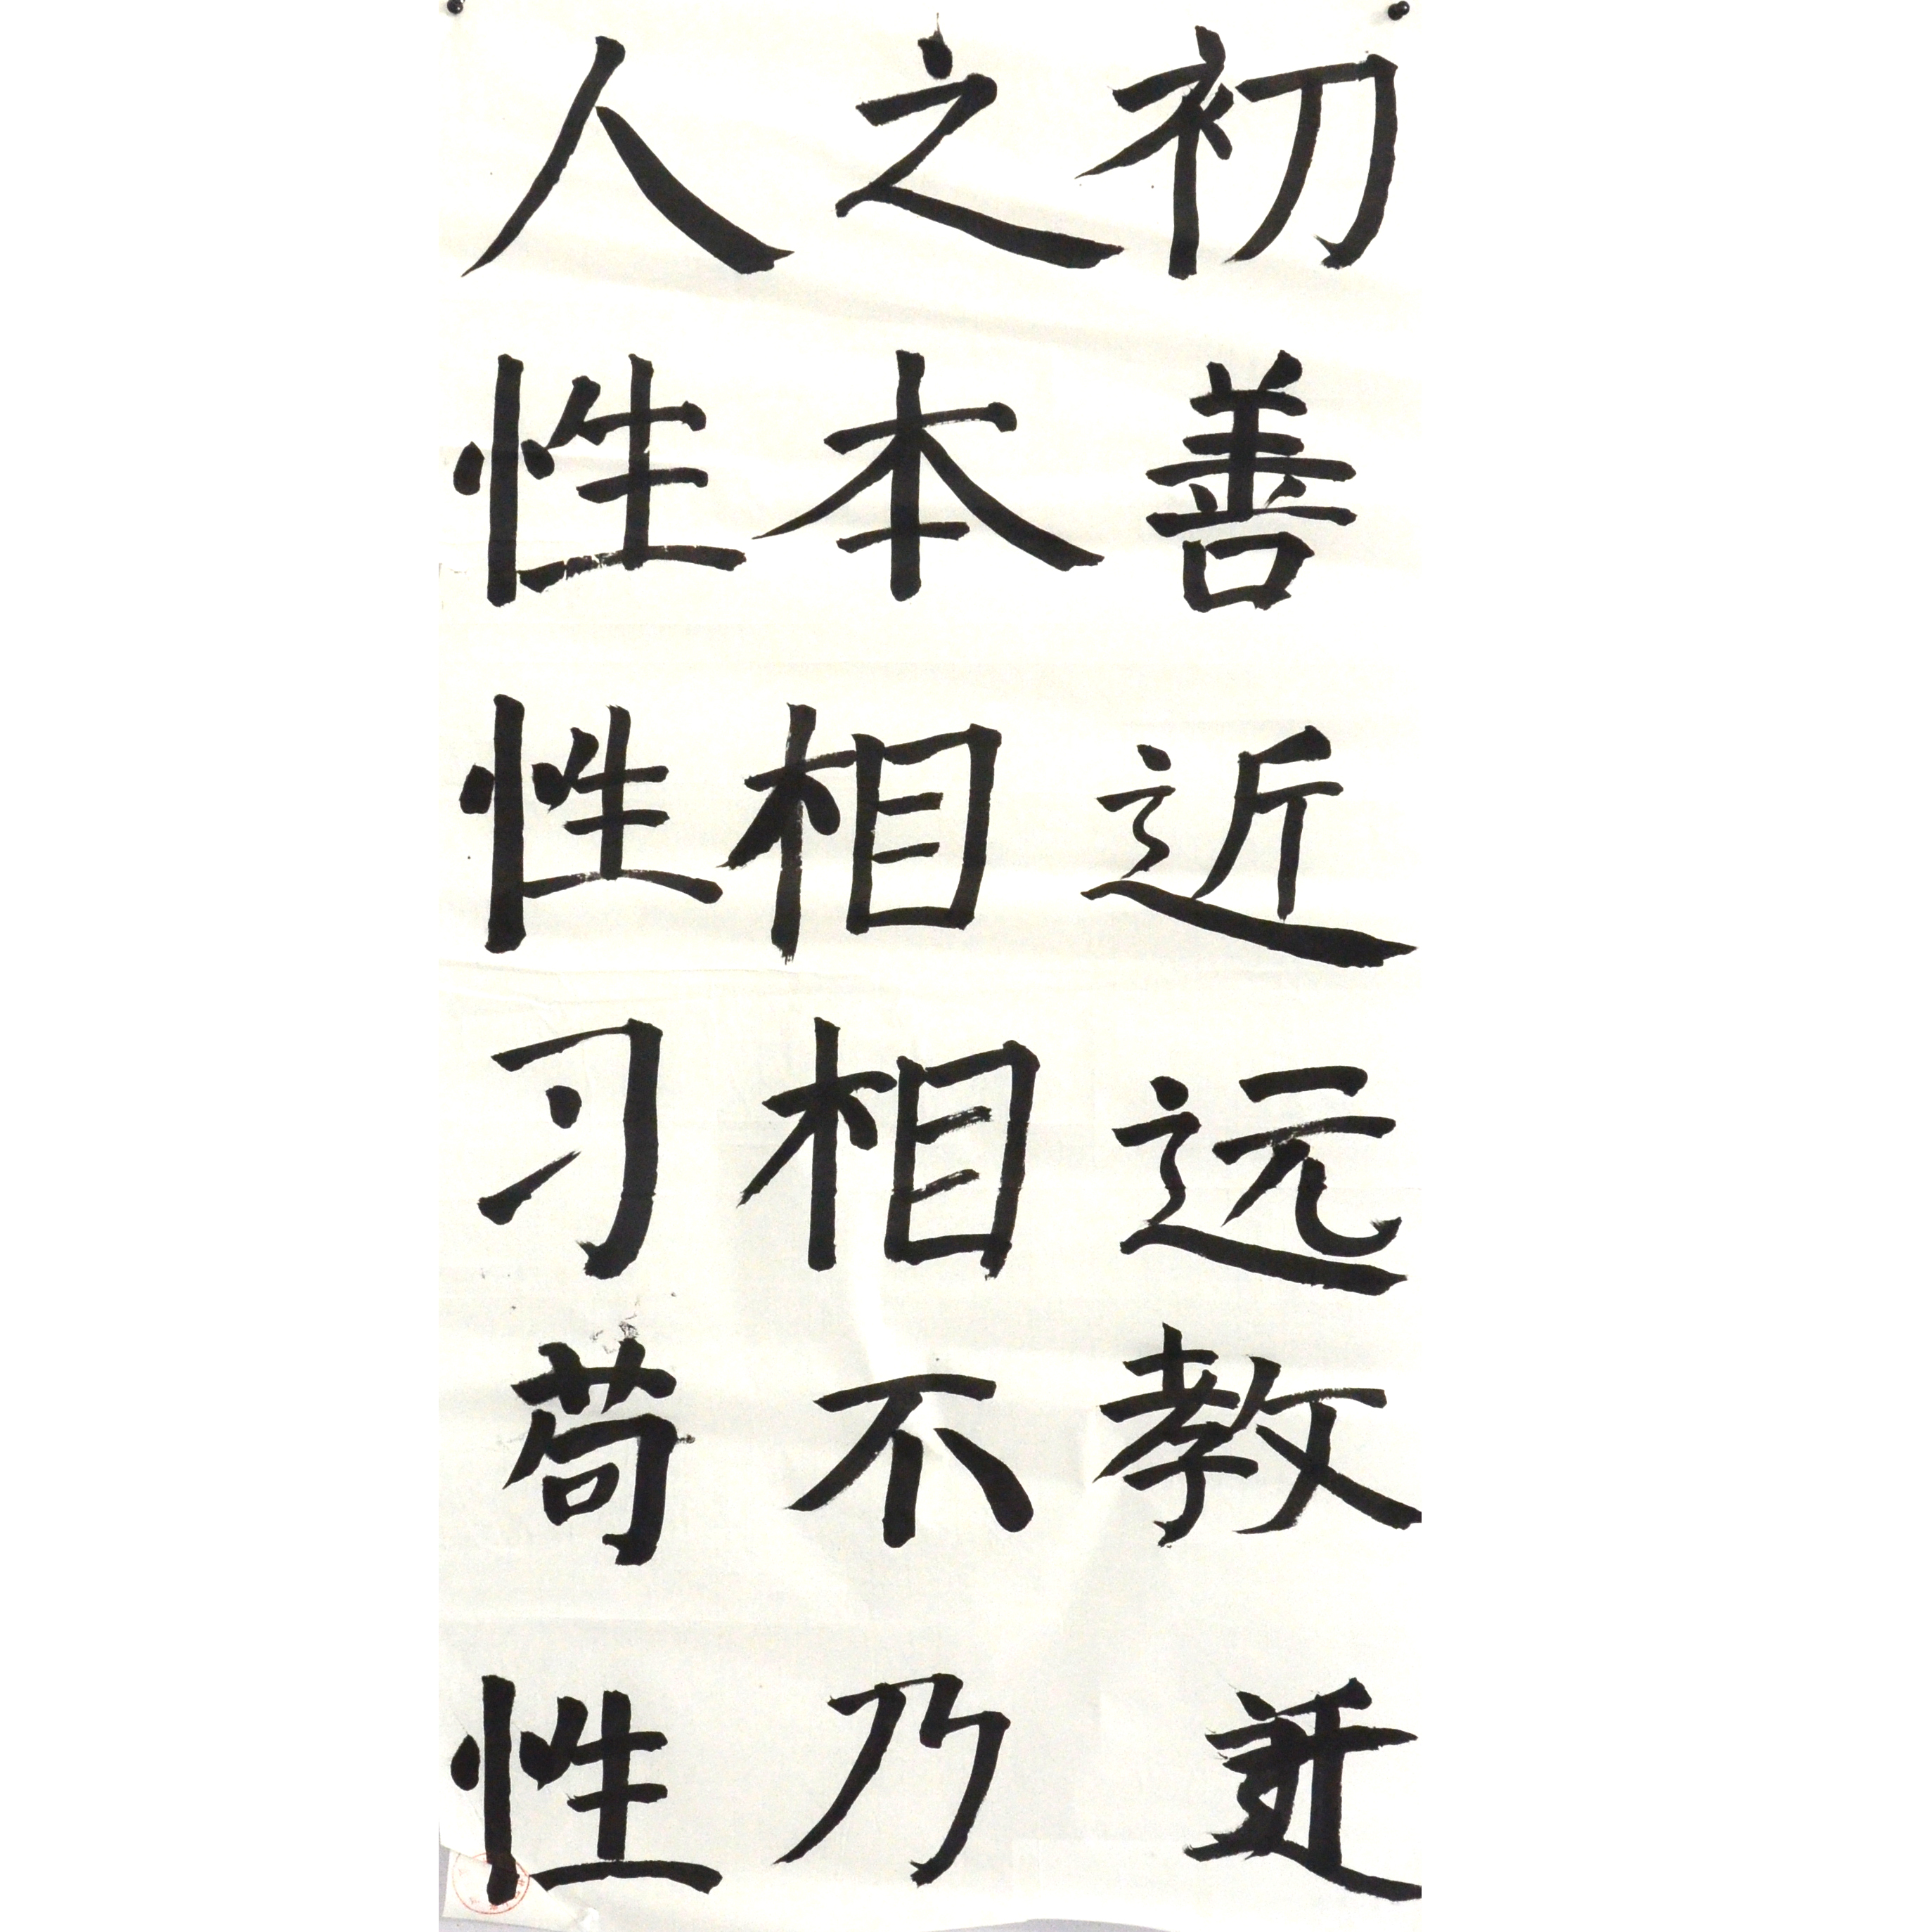 人之初
性本善
性相近
习相远
苟不教
性乃